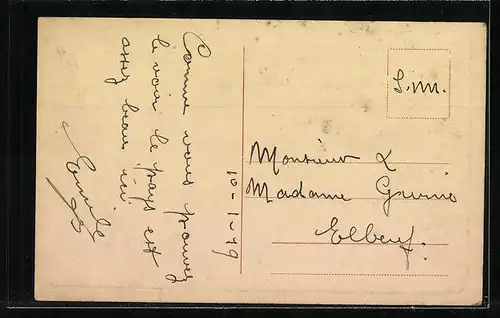 Comme vous pouvez
le voir le pays est
assez beau ici
Emile
10-1-19
S.M.
Monsieur &
Madame
Elbeuf.